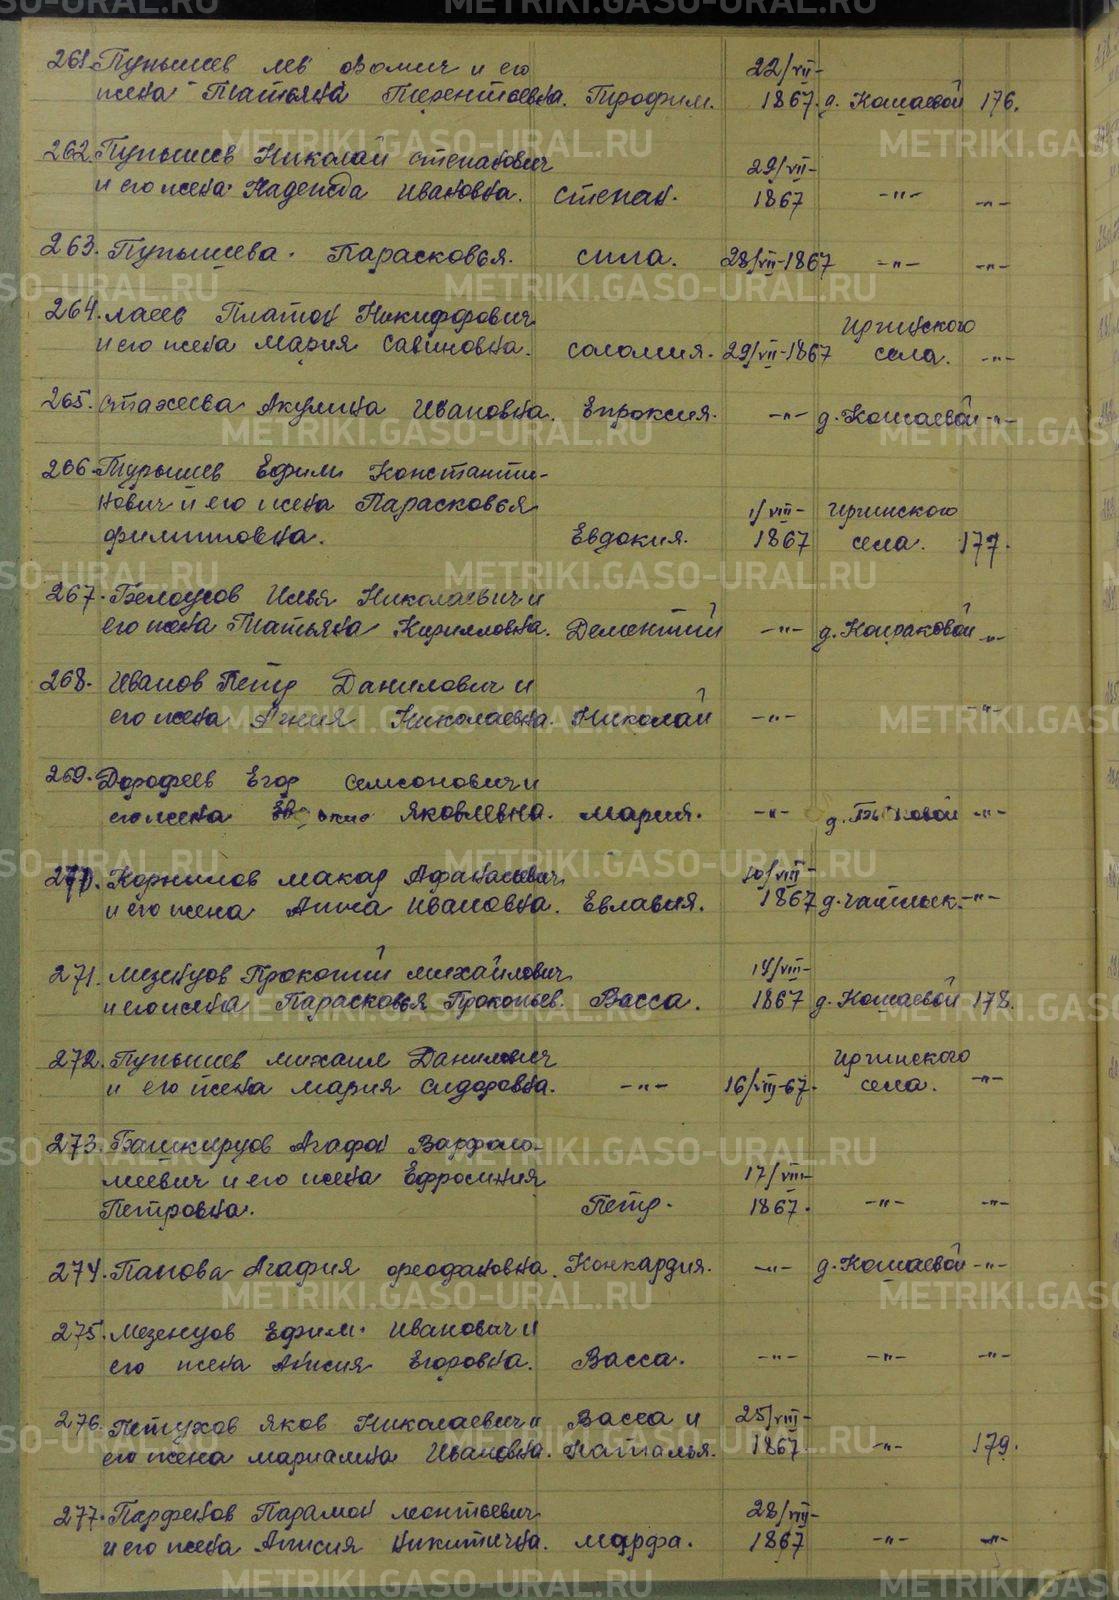 261. Пупышев Лев Фомич и его
жена Татьяна Терентьевна. Трофим. 22/VII-1867. д. Кошаевой 176.
262. Пупышев Николай Степанович
и его жена Надежда Ивановна. Степан. 29/VII-1867 -"- -"-
263. Пупышева Парасковья. Сила. 28/VII-1867 -"- -"-
264. Лаев Платон Никифорович
и его жена Мария Савиновна. Соломия. 29/VII-1867 Иргинского села. -"-
265. Стахеева Акулина Ивановна. Епроксия. -"- д. Кошаевой -"-
266. Турышев Ефим Константи-
нович и его жена Парасковья
Филипповна. Евдокия. 1/VIII-1867 Иргинского села. 177.
267. Белоусов Илья Николаевич и
его жена Татьяна Кирилловна. Дементий -"- д. Конраковой -"-
268. Иванов Петр Данилович и
его жена Агния Николаевна. Николай -"- -"-
269. Дорофеев Егор Семсонович и
его жена Яковлевна. Мария. -"- д. -"-
270. Корнилов Макар Афанасьевич
и его жена Анна Ивановна. Евлавия. 10/VIII-1867 д. Чатлык. -"-
271. Мезенцов Прокопий Михайлович
и его жена Парасковья Прокопьев. Васса. 14/VIII-1867 д. Кошаевой 178.
272. Пупышев Михаил Данилович
и его жена Мария Сидоровна. -"- 16/VIII-67. Иргинского села. -"-
273. Башкирцов Агафон Варфоло-
меевич и его жена Ефросиния
Петровна. Петр. 17/VIII-1867. -"- -"-
274. Папова Агафия Феофановна. Конкардия. -"- д. Кошаевой -"-
275. Мезенцов Ефим Иванович и
его жена Анисия Егоровна. Васса. -"- -"- -"-
276. Петухов Яков Николаевич и
его жена Мариамна Ивановна. Васса и Наталья. 25/VIII-1867 -"- 179.
277. Парфенов Парамон Леонтьевич
и его жена Анисия Никитична. Марфа. 28/VIII-1867 -"- -"-
METRIKI.GASO-URAL.RU